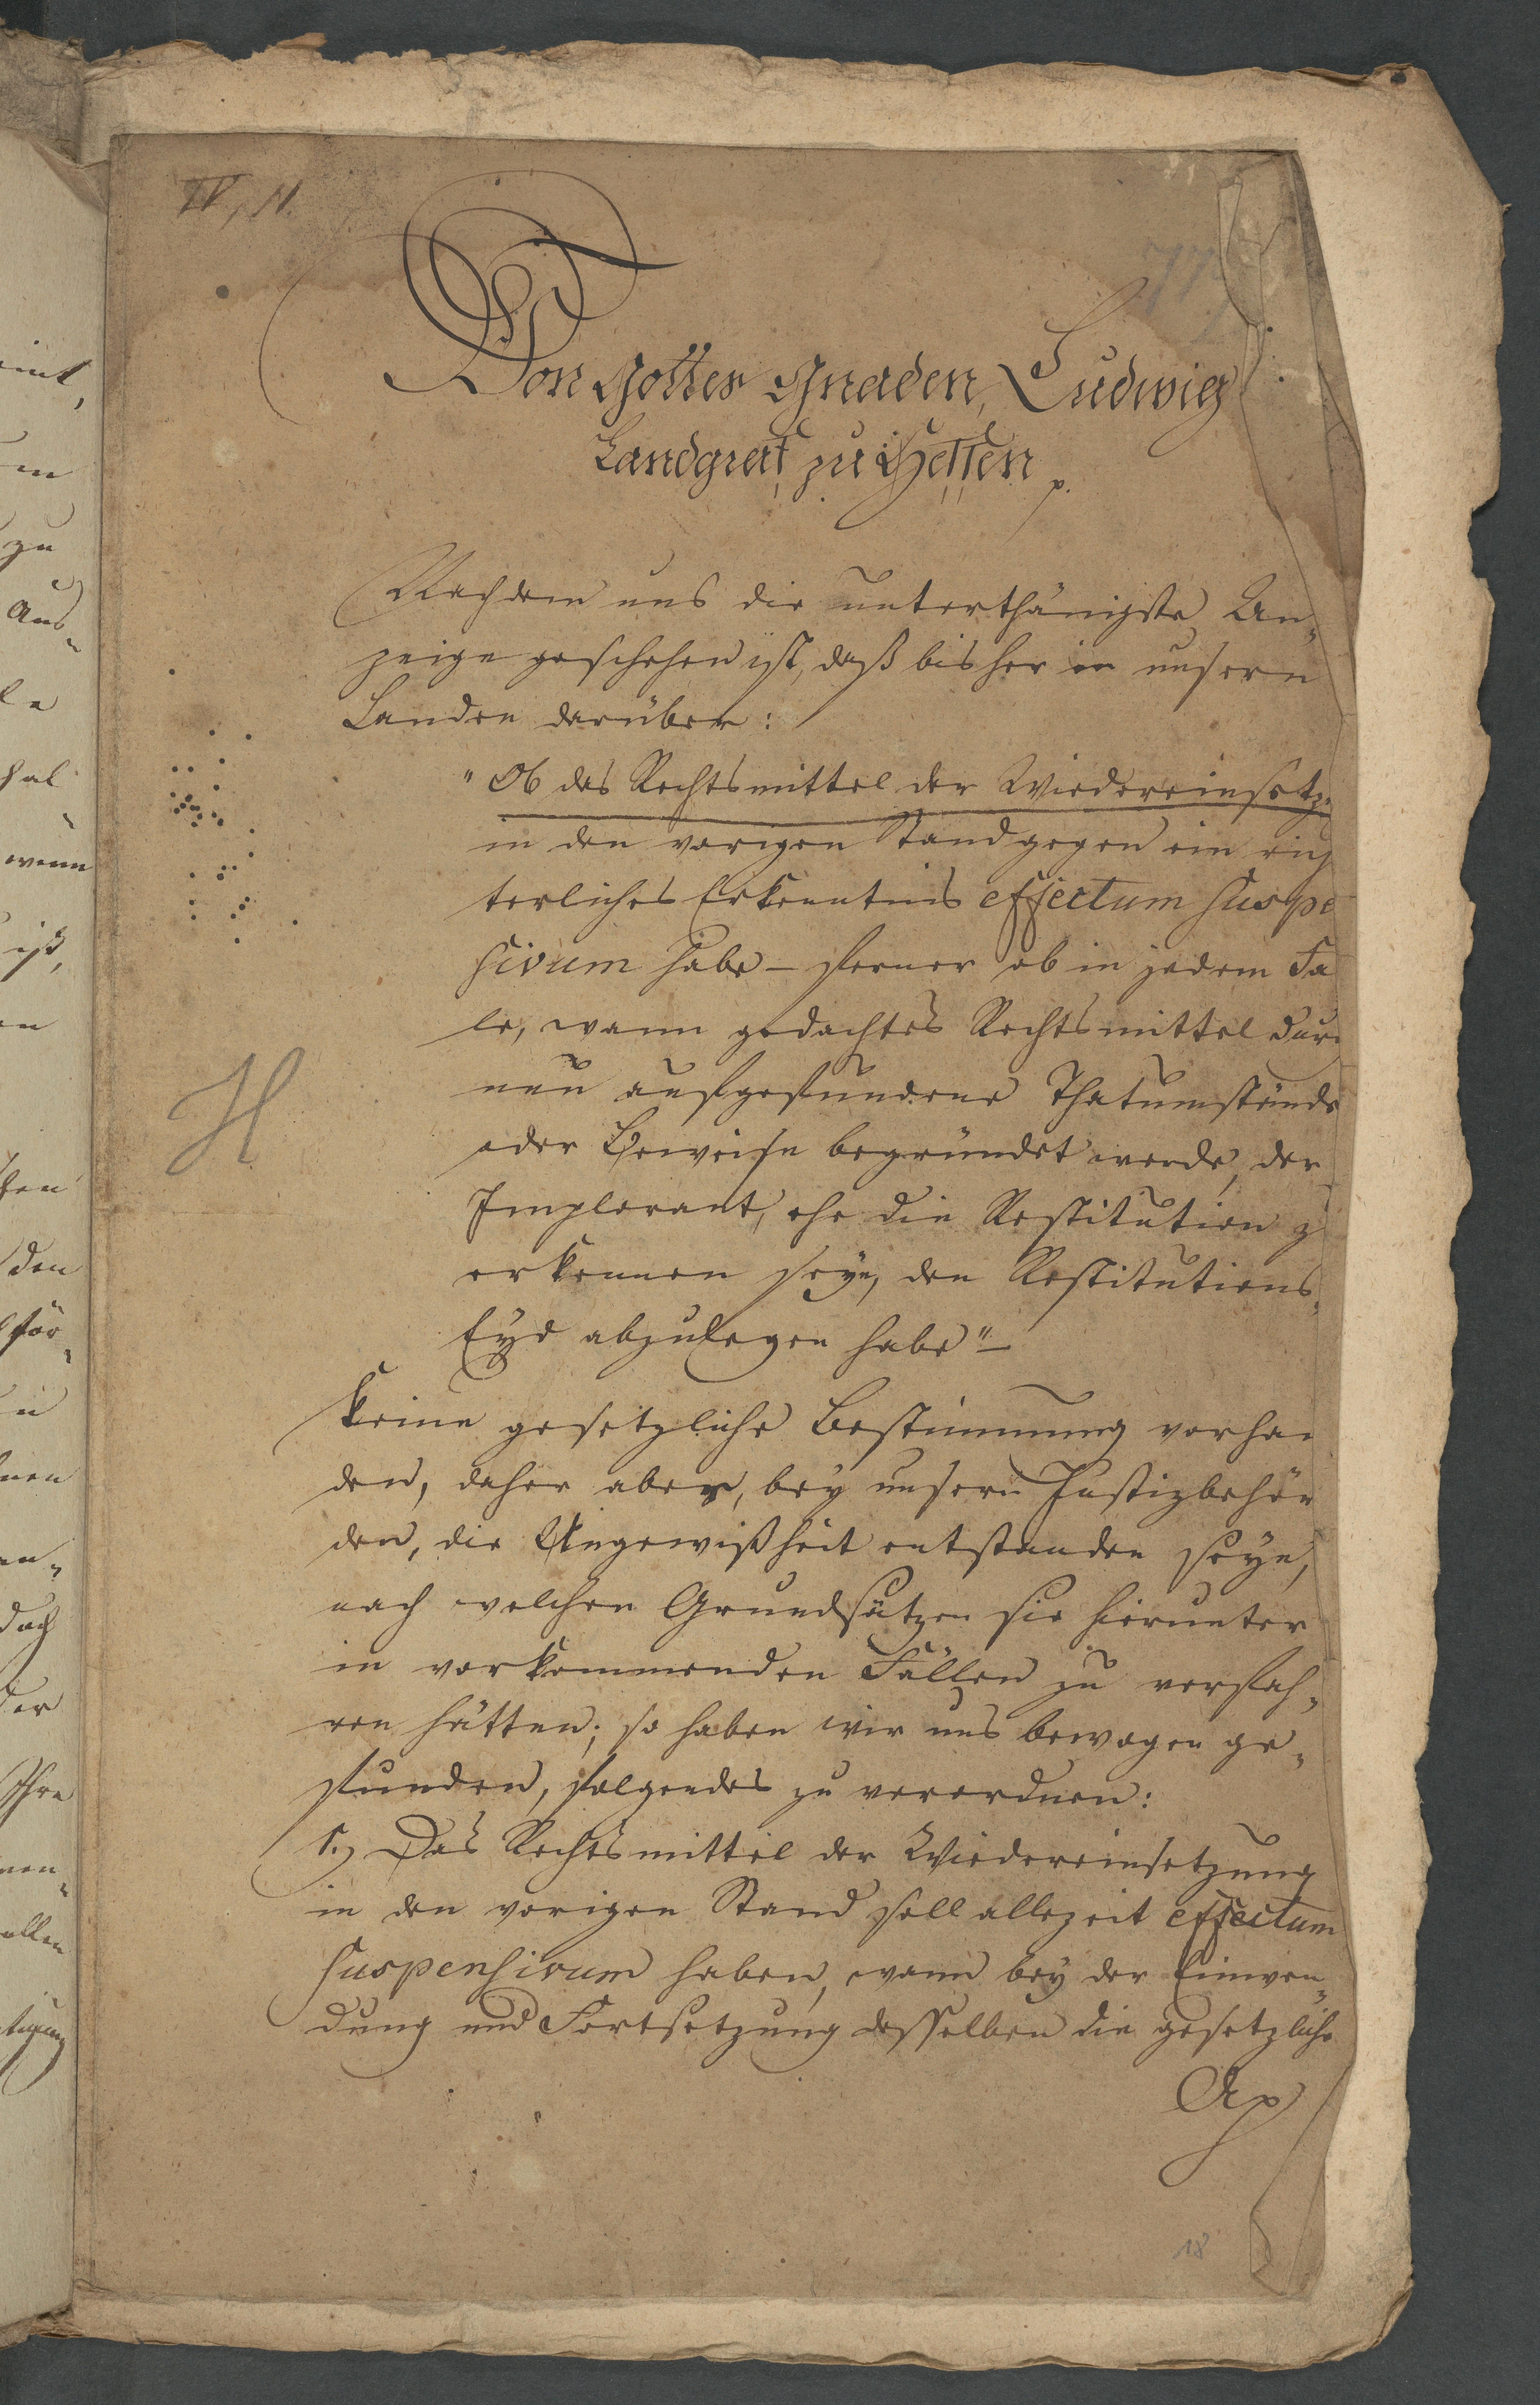 IV, 11.
77
Von Gottes Gnaden, Ludwig
Landgraf zu Hessen p.
Nachdem uns die unterthänigste An-
zeige geschehen ist, daß bisher in unsern
Landen darüber:
"Ob das Rechtsmittel der Wiedereinsetz
in den vorigen Stand gegen ein rich
terliches Erkenntnis effectum suspe
sivum habe – ferner ob in jedem Fa
le, wann gedachtes Rechtsmittel dur
neu aufgefundene Thatumstände
oder Beweise begründet werde, der
Implorant, ehe die Restitution z
erkennen seye, den Restitutions-
Eyd abzulegen habe" –
keine gesetzliche Bestimmung vorhan
den, daher aber, bey unsern Justizbehör
den, die Ungewißheit entstanden seye,
nach welchen Grundsätzen sie hierunter
in vorkommenden Fällen zu verfah-
ren hätten; so haben wir uns bewogen ge-
funden, folgendes zu verordnen:
1.) Das Rechtsmittel der Wiedereinsetzung
in den vorigen Stand soll allezeit effectum
suspensivum haben, wann bey der Einwen-
dung und Fortsetzung desselben die gesetzliche
H
18